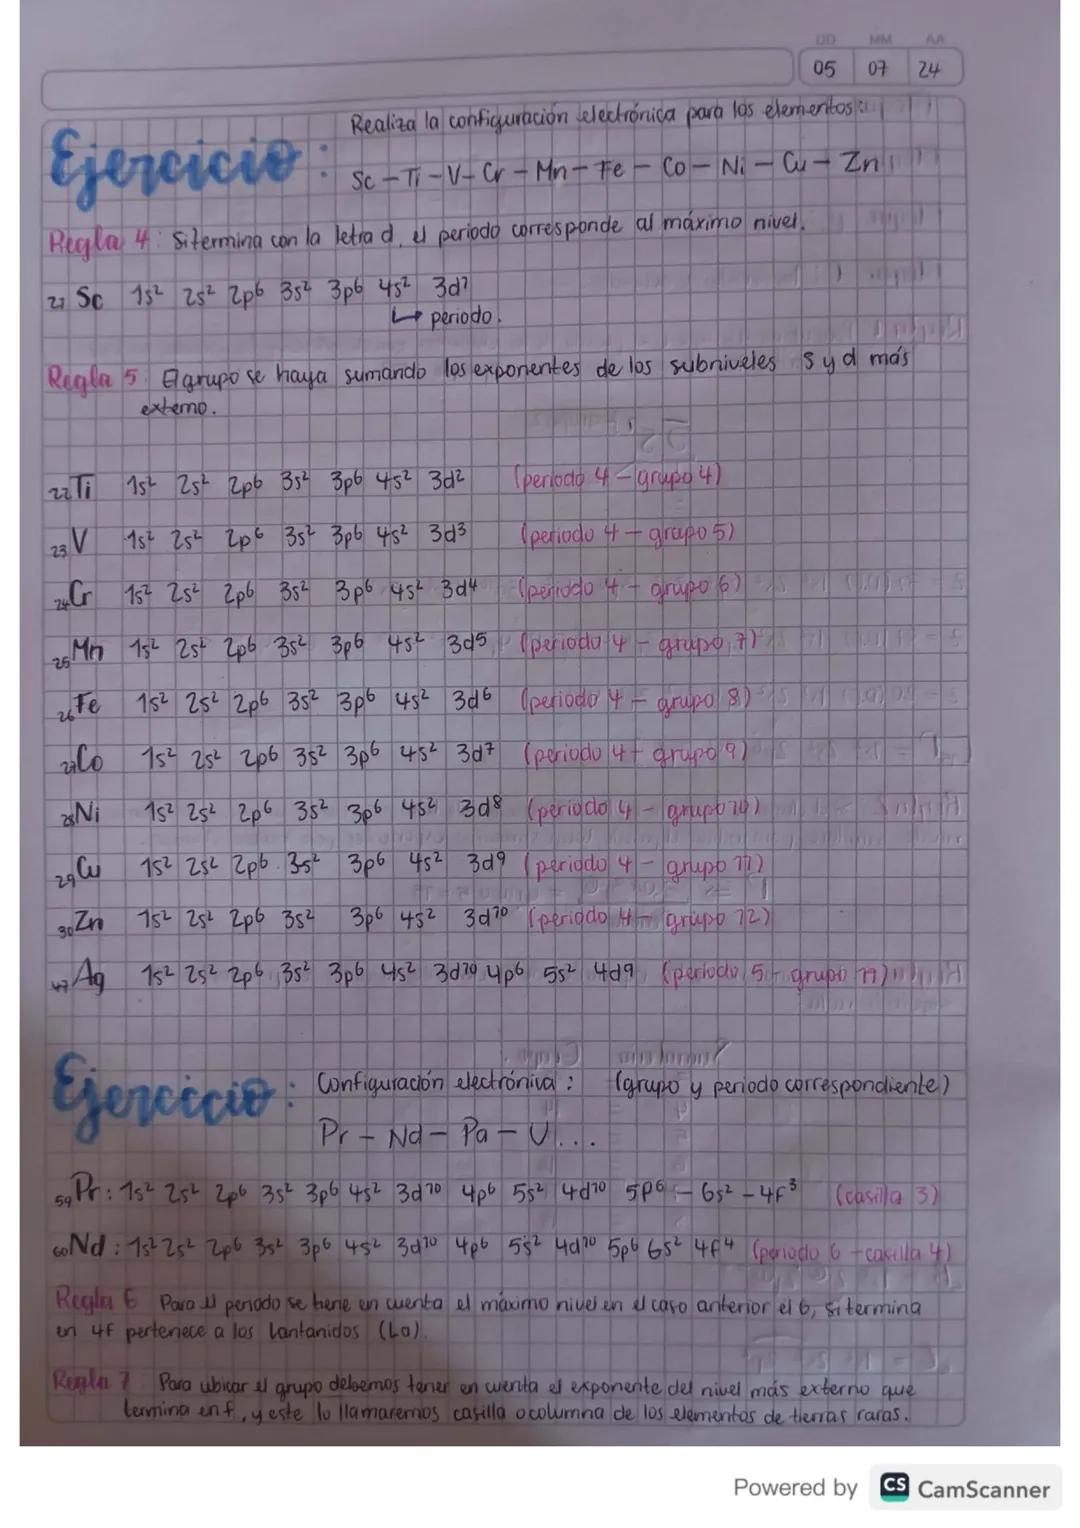 DD MM AA
05 07 24
Realiza la configuración electrónica para los elementos:
Ejercicio:
Sc - Ti - V - Cr - Mn - Fe - Co - Ni - Cu - Zn
Regla 4: Si termina con la letra d, el periodo corresponde al máximo nivel.
21 Sc 1s² 2s² 2p⁶ 3s² 3p⁶ 4s² 3d¹
↳ periodo.
Regla 5. El grupo se haya sumando los exponentes de los subniveles s y d más
externo.
22 Ti 1s² 2s² 2p⁶ 3s² 3p⁶ 4s² 3d² (periodo 4 - grupo 4)
23 V 1s² 2s² 2p⁶ 3s² 3p⁶ 4s² 3d³ (periodo 4 - grupo 5)
24 Cr 1s² 2s² 2p⁶ 3s² 3p⁶ 4s² 3d⁴ (periodo 4 - grupo 6)
25 Mn 1s² 2s² 2p⁶ 3s² 3p⁶ 4s² 3d⁵ (periodo 4 - grupo 7)
26 Fe 1s² 2s² 2p⁶ 3s² 3p⁶ 4s² 3d⁶ (periodo 4 - grupo 8)
27 Co 1s² 2s² 2p⁶ 3s² 3p⁶ 4s² 3d⁷ (periodo 4 - grupo 9)
28 Ni 1s² 2s² 2p⁶ 3s² 3p⁶ 4s² 3d⁸ (periodo 4 - grupo 10)
29 Cu 1s² 2s² 2p⁶ 3s² 3p⁶ 4s² 3d⁹ (periodo 4 - grupo 11)
30 Zn 1s² 2s² 2p⁶ 3s² 3p⁶ 4s² 3d¹⁰ (periodo 4 - grupo 12)
47 Ag 1s² 2s² 2p⁶ 3s² 3p⁶ 4s² 3d¹⁰ 4p⁶ 5s² 4d⁹ (periodo 5 - grupo 11)
Ejercicio: Configuración electrónica: (grupo y periodo correspondiente)
Pr - Nd - Pa - U...
59 Pr: 1s² 2s² 2p⁶ 3s² 3p⁶ 4s² 3d¹⁰ 4p⁶ 5s² 4d¹⁰ 5p⁶ - 6s² - 4f³ (casilla 3)
60 Nd: 1s² 2s² 2p⁶ 3s² 3p⁶ 4s² 3d¹⁰ 4p⁶ 5s² 4d¹⁰ 5p⁶ 6s² 4f⁴ (periodo 6 - casilla 4)
Regla 6 Para el periodo se tiene en cuenta el máximo nivel en el caso anterior el 6, si termina
en 4f pertenece a los Lantanidos (La).
Regla 7 Para ubicar el grupo debemos tener en cuenta el exponente del nivel más externo que
termina en f, y este lo llamaremos casilla o columna de los elementos de tierras raras.
Powered by CS CamScanner